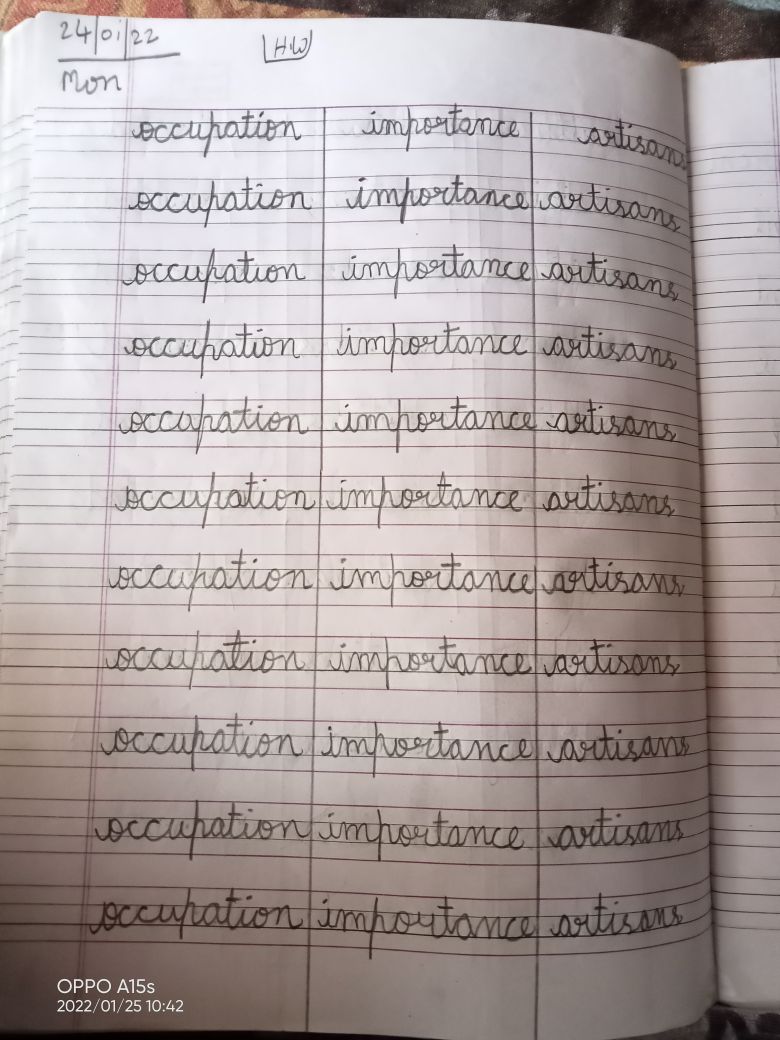 24/01/22
H.W
Mon
occupation importance artisans
occupation importance artisans
occupation importance artisans
occupation importance artisans
occupation importance artisans
occupation importance artisans
occupation importance artisans
occupation importance artisans
occupation importance artisans
occupation importance artisans
occupation importance artisans
OPPO A15s
2022/01/25 10:42